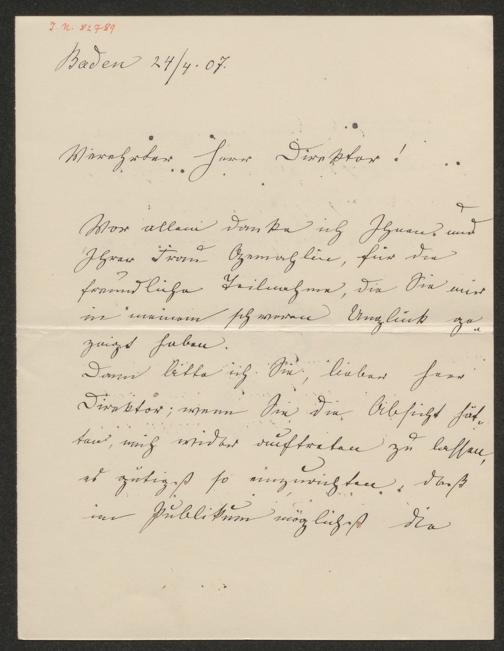 J. N. 82789
Baden 24/4. 07.
Verehrter Herr Direktor!
Vor allem danke ich Ihnen und
Ihrer Frau Gemahlin, für die
freundliche Teilnahme, die Sie mir
in meinem schweren Unglück ge-
zeigt haben.
Dann bitte ich Sie, lieber Herr
Direktor, wenn Sie die Absicht hät-
ten, mich wieder auftreten zu lassen,
es gütigst so einzurichten, daß
im Publikum möglichst die